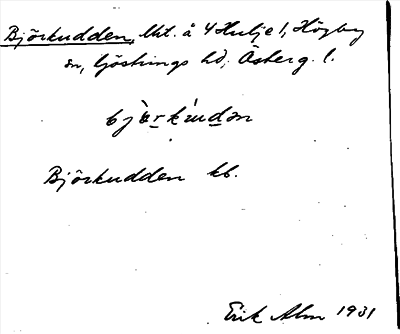 Björkudden, Lht. å 4 Hulje 1, Högby
sn, Göstrings hd, Österg. l.
bjö̀rkúdən
Björkudden kb.
Erik Alm 1931